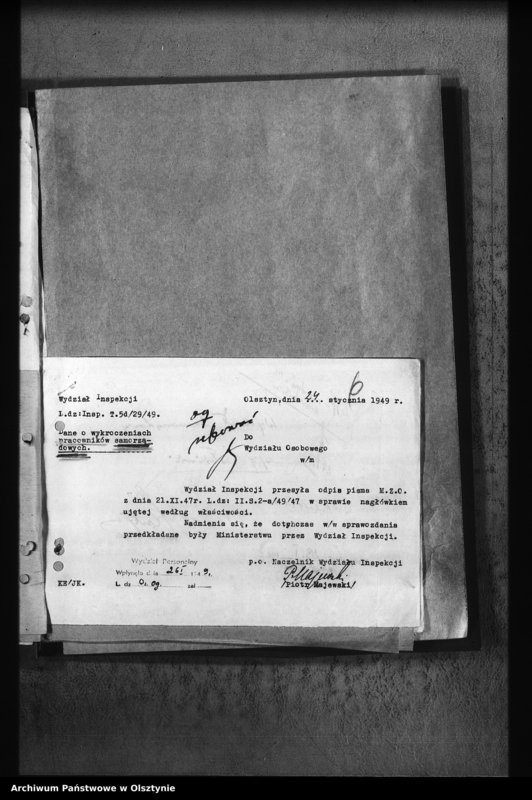 Wydział Inspekcji
Olsztyn,dnia 24. stycznia 1949 r.
L.dz:Insp. T.5d/29/49.
Dane o wykroczeniach
pracowników samorzą-
dowych.
og
Do
Wydziału Osobowego
w/m
Wydział Inspekcji przesyła odpis pisma M.Z.O.
z dnia 21.XI.47r. L.dz: II.S.2-a/49/47 w sprawie nagłówkiem
ujętej według właściwości.
Nadmienia się, że dotychczas w/w sprawozdania
przedkładane były Ministerstwu przez Wydział Inspekcji.
Wydział Personalny
Wpłynęło dnia 26 I 1949 r.
L. dz O. og. zał
p.o. Naczelnik Wydziału Inspekcji
P. Majewski
/Piotr Majewski/
KE/JK.
Archiwum Państwowe w Olsztynie